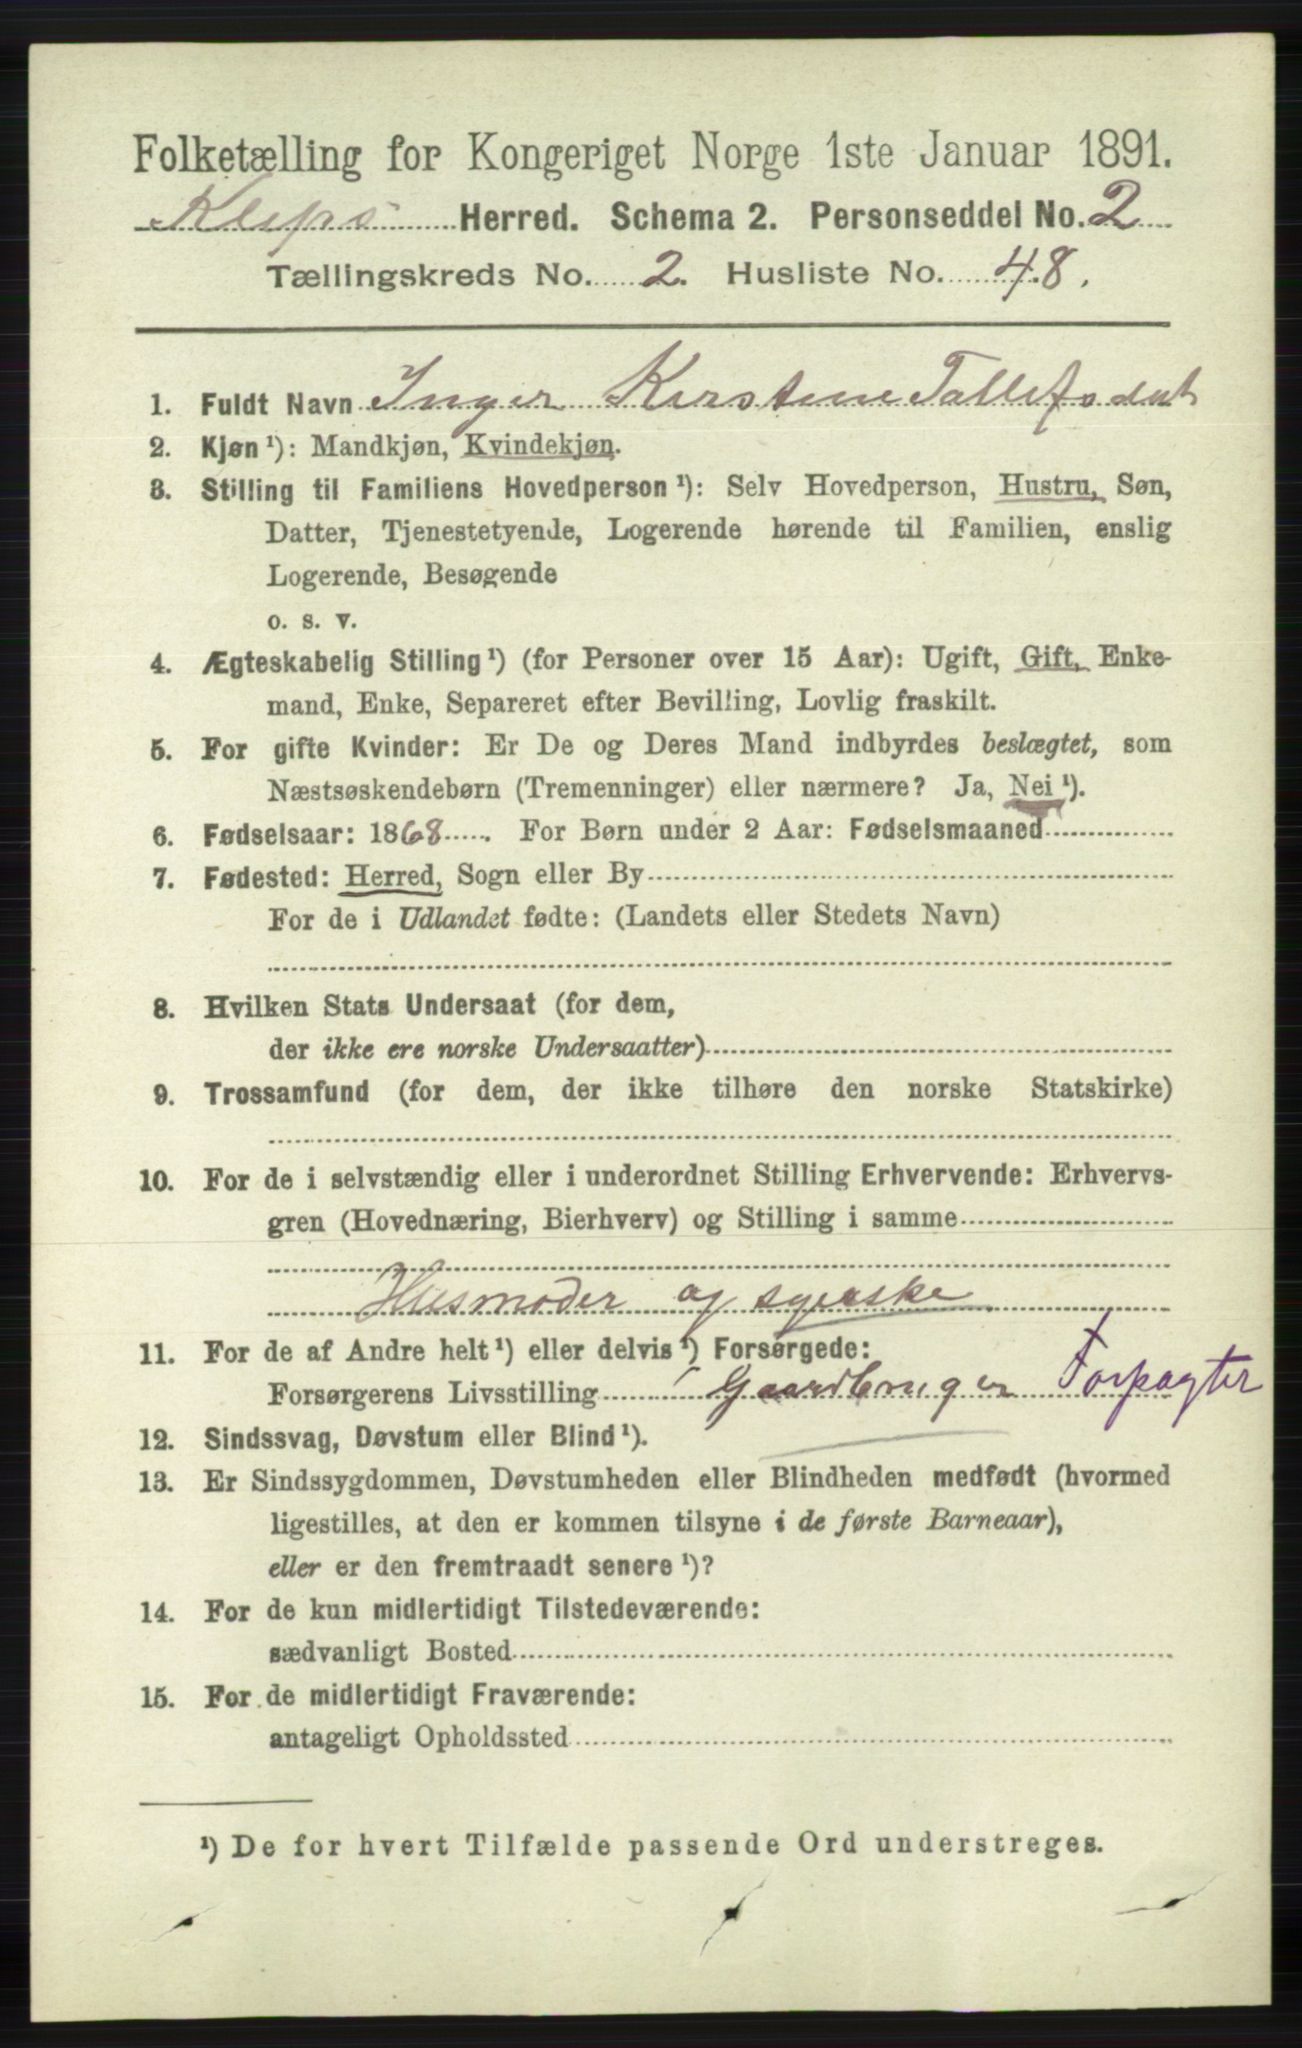 Folketælling for Kongeriget Norge 1ste Januar 1891.
Klepps Herred. Schema 2. Personseddel No. 2
Tællingskreds No. 2. Husliste No. 48.
1. Fuldt Navn Inger Kirstine Tallefsdat
2. Kjøn ¹): Mandkjøn, Kvindekjøn.
3. Stilling til Familiens Hovedperson ¹): Selv Hovedperson, Hustru, Søn,
Datter, Tjenestetyende, Logerende hørende til Familien, enslig
Logerende, Besøgende
o. s. v.
4. Ægteskabelig Stilling ¹) (for Personer over 15 Aar): Ugift, Gift, Enke-
mand, Enke, Separeret efter Bevilling, Lovlig fraskilt.
5. For gifte Kvinder: Er De og Deres Mand indbyrdes beslægtet, som
Næstsøskendebørn (Tremenninger) eller nærmere? Ja, Nei ¹).
6. Fødselsaar: 1868 For Børn under 2 Aar: Fødselsmaaned
7. Fødested: Herred, Sogn eller By
For de i Udlandet fødte: (Landets eller Stedets Navn)
8. Hvilken Stats Undersaat (for dem,
der ikke ere norske Undersaatter)
9. Trossamfund (for dem, der ikke tilhøre den norske Statskirke)
10. For de i selvstændig eller i underordnet Stilling Erhvervende: Erhvervs-
gren (Hovednæring, Bierhverv) og Stilling i samme
Husmoder og syerske
11. For de af Andre helt ¹) eller delvis ¹) Forsørgede:
Forsørgerens Livsstilling Gaardbruger Forpagter
12. Sindssvag, Døvstum eller Blind ¹).
13. Er Sindssygdommen, Døvstumheden eller Blindheden medfødt (hvormed
ligestilles, at den er kommen tilsyne i de første Barneaar),
eller er den fremtraadt senere ¹)?
14. For de kun midlertidigt Tilstedeværende:
sædvanligt Bosted
15. For de midlertidigt Fraværende:
antageligt Opholdssted
¹) De for hvert Tilfælde passende Ord understreges.